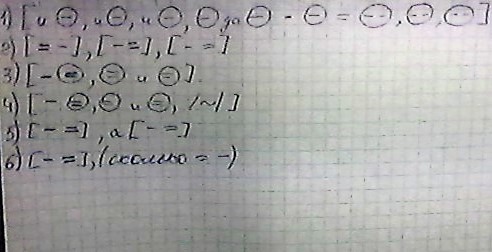 1) [и ⊖, и ⊖, и ⊖, ⊖ да ⊖ - ⊖ = ⊖, ⊖, ⊖]
2) [= -], [- =], [- =]
3) [- ⊜, ⊜ и ⊖].
4) [- ⊜, ⊖ и ⊖, /~/]
5) [- =], а [- =]
6) [- =], (сколько = -)